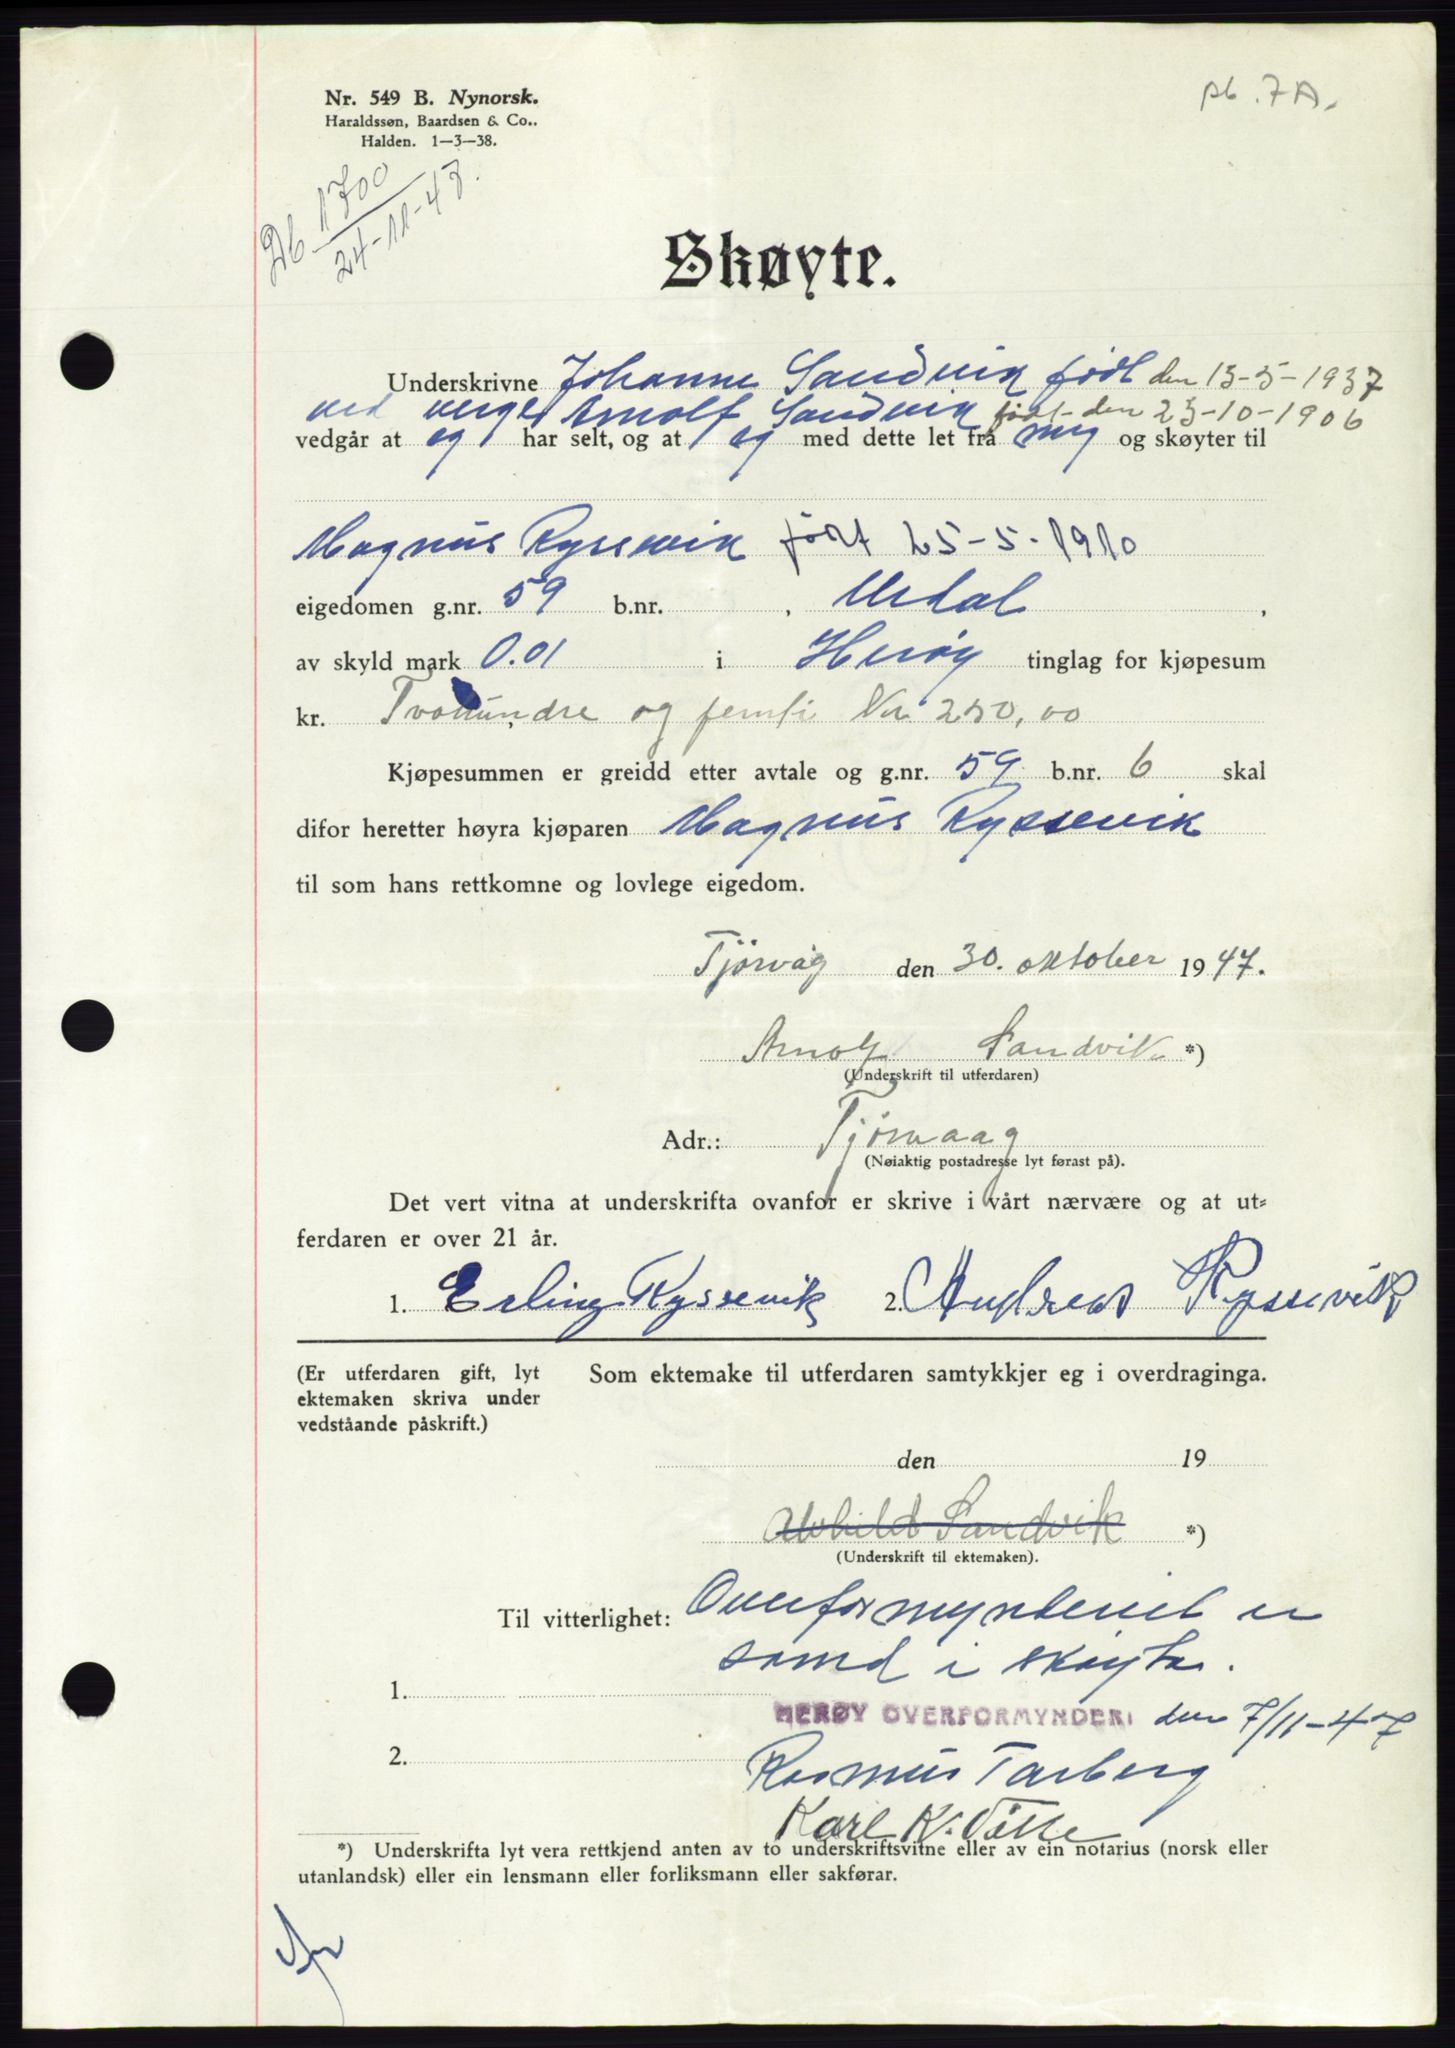 Nr. 549 B. Nynorsk.
Haraldssøn, Baardsen & Co..
Halden. 1-3-38.
pb. 7A.
Db 1700
24-11-47.
Skøyte.
Underskrivne Johanne Sandvik født den 13-5-1937
ved verge Arnolf Sandvik født den 23-10-1906
vedgår at eg har selt, og at eg med dette let frå meg og skøyter til
Magnus Ryssevik født 25-5-1910
eigedomen g.nr. 59 b.nr. , Urdal ,
av skyld mark 0.01 i Herøy tinglag for kjøpesum
kr. Tvohundre og femti Kr 250,00
Kjøpesummen er greidd etter avtale og g.nr. 59 b.nr. 6 skal
difor heretter høyra kjøparen Magnus Ryssevik
til som hans rettkomne og lovlege eigedom.
Tjørvåg den 30. oktober 1947.
Arnolf Sandvik *)
(Underskrift til utferdaren)
Adr.: Tjørvaag
(Nøiaktig postadresse lyt førast på).
Det vert vitna at underskrifta ovanfor er skrive i vårt nærvære og at ut-
ferdaren er over 21 år.
1. Erling Ryssevik 2. Andreas Ryssevik
(Er utferdaren gift, lyt
ektemaken skriva under
vedståande påskrift.)
Som ektemake til utferdaren samtykkjer eg i overdraginga.
den 19
Sandvik *)
(Underskrift til ektemaken).
Til vitterlighet: Overformynderiet er
samd i skøyta.
1.
HERØY OVERFORMYNDERI den 7/11-47
2.
Rasmus Tarberg
Karl K. Våtte
*) Underskrifta lyt vera rettkjend anten av to underskriftsvitne eller av ein notarius (norsk eller
utanlandsk) eller ein lensmann eller forliksmann eller sakførar.